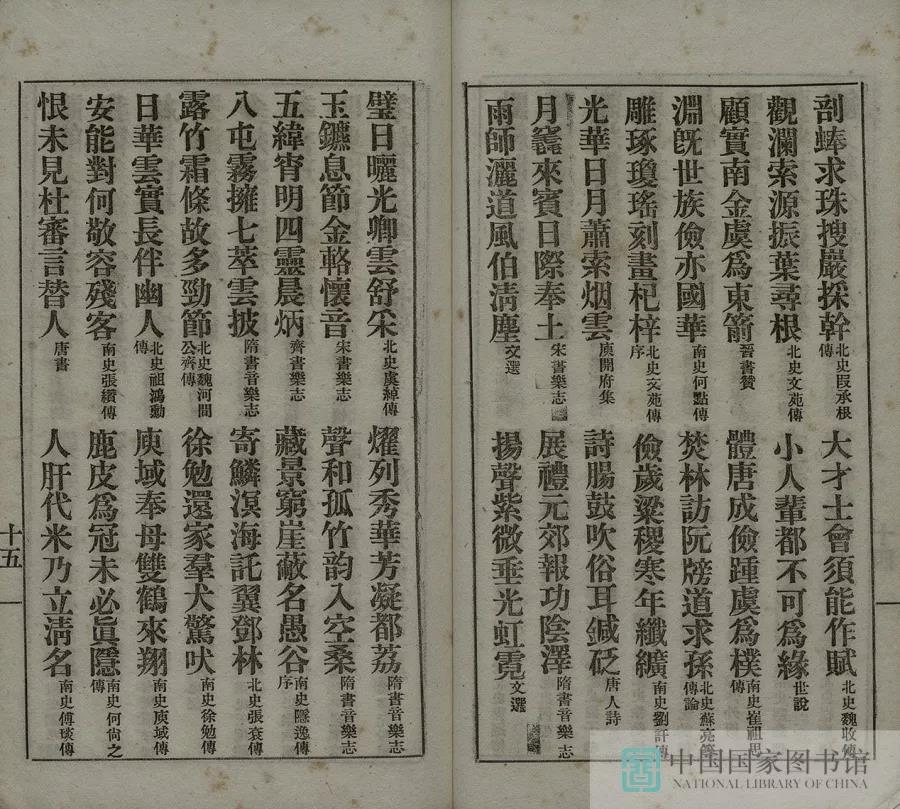 剖蜯求珠搜巖採幹北史叚承根傳 大才士會須能作賦北史魏收傳
觀瀾索源振葉尋根北史文苑傳 小人輩都不可為緣世說
顧實南金虞爲東箭晉書贊 體唐成儉踵虞爲樸南史崔祖思傳
淵旣世族儉亦國華南史何點傳 焚林訪阮牓道求孫北史蘇亮等傳論
雕琢瓊瑤刻畫杞梓北史文苑傳序 儉歲粱稷寒年纖纊南史劉訏傳
光華日月蕭索烟雲庾開府集 詩腸鼓吹俗耳鍼砭唐人詩
月竁來賓日際奉土宋書樂志 展禮元郊報功陰澤隋書音樂志
雨師灑道風伯淸塵文選 揚聲紫微垂光虹霓文選
璧日曬光卿雲舒采北史虞綽傳 燿列秀華芳凝都荔隋書音樂志
玉鑣息節金輅懷音宋書樂志 聲和孤竹韵入空桑隋書音樂志
五緯宵明四靈晨炳齊書樂志 藏景窮崖蔽名愚谷南史隱逸傳序
八屯霧擁七萃雲披隋書音樂志 寄鱗溟海託翼鄧林北史張袞傳
露竹霜條故多勁節北史魏河間公齊傳 徐勉還家羣犬驚吠南史徐勉傳
日華雲實長伴幽人北史祖鴻勳傳 庾域奉母雙鶴來翔南史庾域傳
安能對何敬容殘客南史張纘傳 鹿皮爲冠未必眞隱南史何尙之傳
恨未見杜審言替人唐書 人肝代米乃立淸名南史傅琰傳
十五
中国国家图书馆
NATIONAL LIBRARY OF CHINA